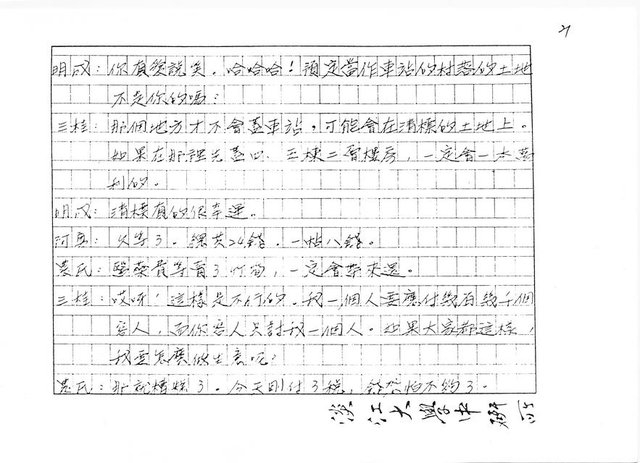 21
明成：你真愛說笑，哈哈哈！預定當作車站的村落的土地
不是你的嗎？
三桂：那個地方才不會蓋車站，可能會在清標的土地上。
如果在那裡先蓋四、三棟二層樓房，一定會一本萬
利的。
明成：清標真的很幸運。
阿：久等了。總共24錢，一帖八錢。
氏：醫藥費等賣了竹筍，一定會拿來還。
三桂：哎呀！這樣是不行的。我一個人要應付幾百幾千個
客人，而你客人只討我一個人。如果大家都這樣，
我要怎麼做生意呢？
氏：那就糟糕了。今天剛付了稅，錢恐怕不夠了。
淡江大學中研所